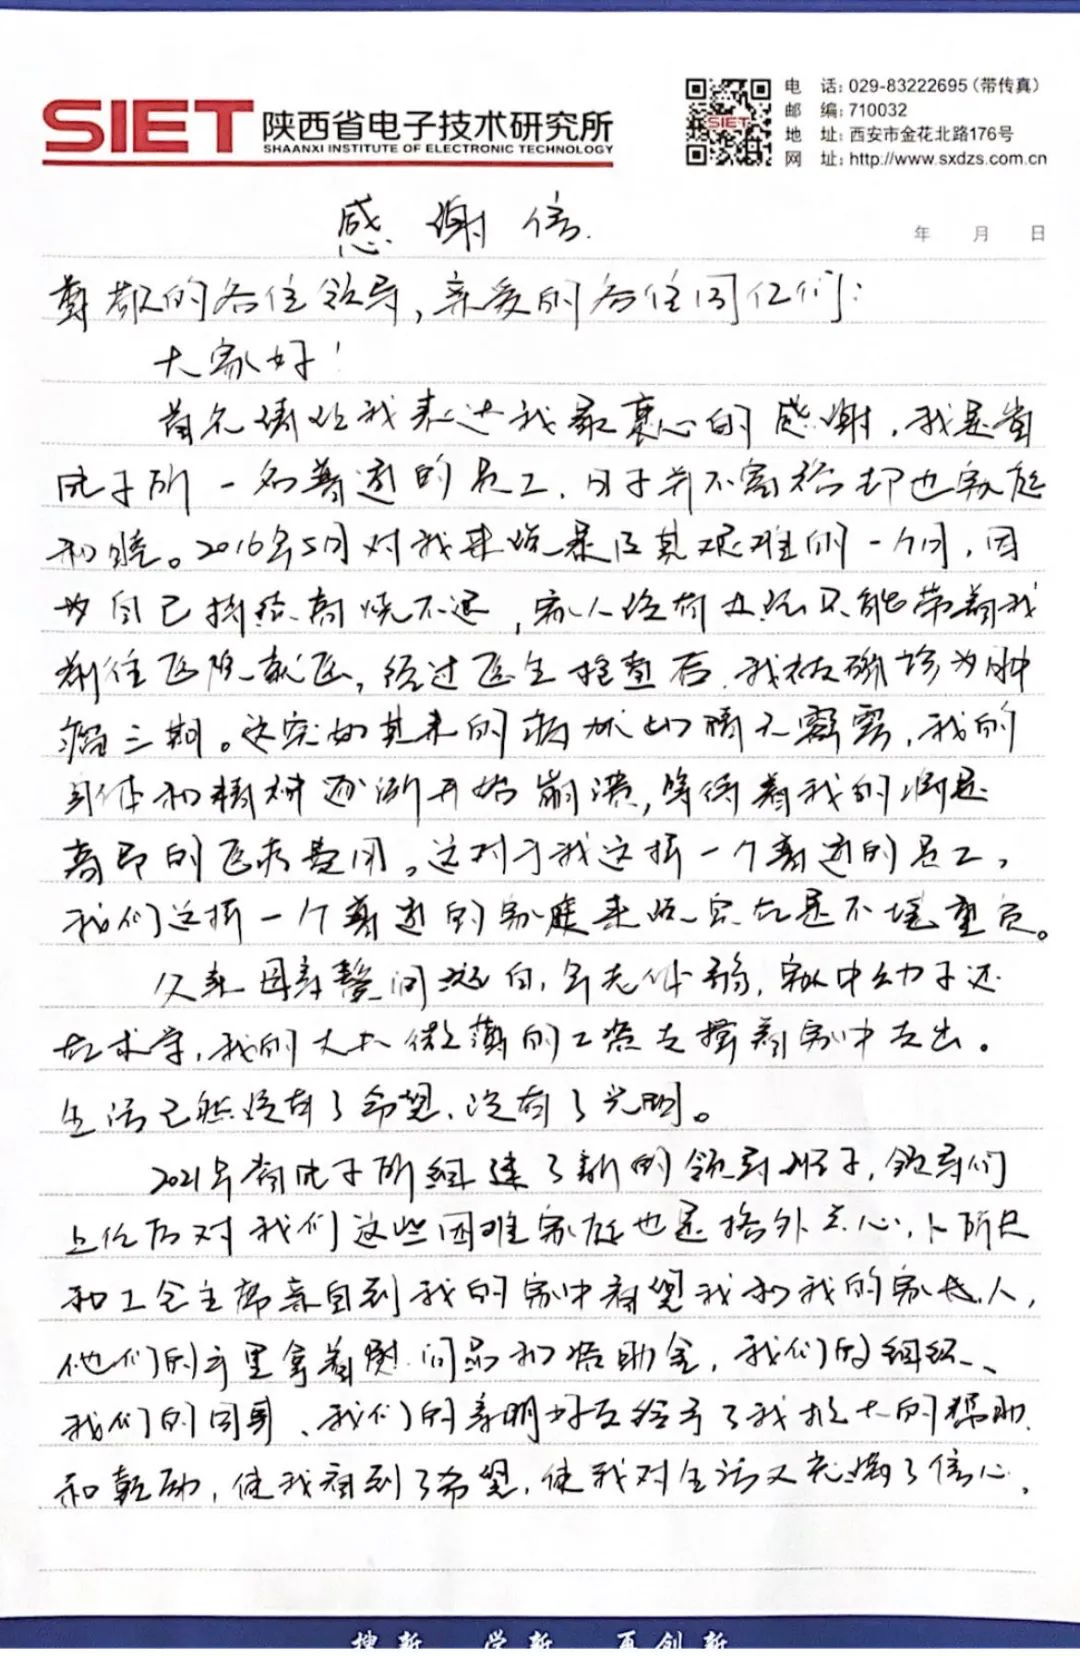 SIET 陕西省电子技术研究所
SHAANXI INSTITUTE OF ELECTRONIC TECHNOLOGY
SIET
电 话: 029-83222695(带传真)
邮 编: 710032
地 址: 西安市金花北路176号
网 址: http://www.sxdzs.com.cn
感谢信.
年 月 日
尊敬的各位领导,亲爱的各位同仁们:
大家好!
首先请给我表达我最衷心的感谢,我是省
电子所一名普通的员工,日子并不富裕却也家庭
和睦。2016年5月对我来说是及其艰难的一个月,因
为自己持续高烧不退,家人没有办法只能带着我
前往医院就医,经过医生检查后,我被确诊为肿
瘤三期。这突如其来的病状如晴天霹雳,我的
身体和精神逐渐开始崩溃,等待着我的将是
高昂的医疗费用。这对于我这样一个普通的员工,
我们这样一个普通的家庭来说实在是不堪重负。
父亲母亲鬓间斑白,年老体弱,家中幼子还
在求学,我的丈夫微薄的工资支撑着家中支出。
生活已然没有了希望,没有了光明。
2021年省电子所组建了新的领导班子,领导们
上任后对我们这些困难家庭也是格外关心,卜所长
和工会主席亲自到我的家中看望我和我的家人,
他们的手里拿着慰问品和资助金,我们的组织、
我们的同事、我们的亲朋好友给予了我极大的帮助
和鼓励,使我看到了希望,使我对生活又充满了信心,
搜新 学新 再创新